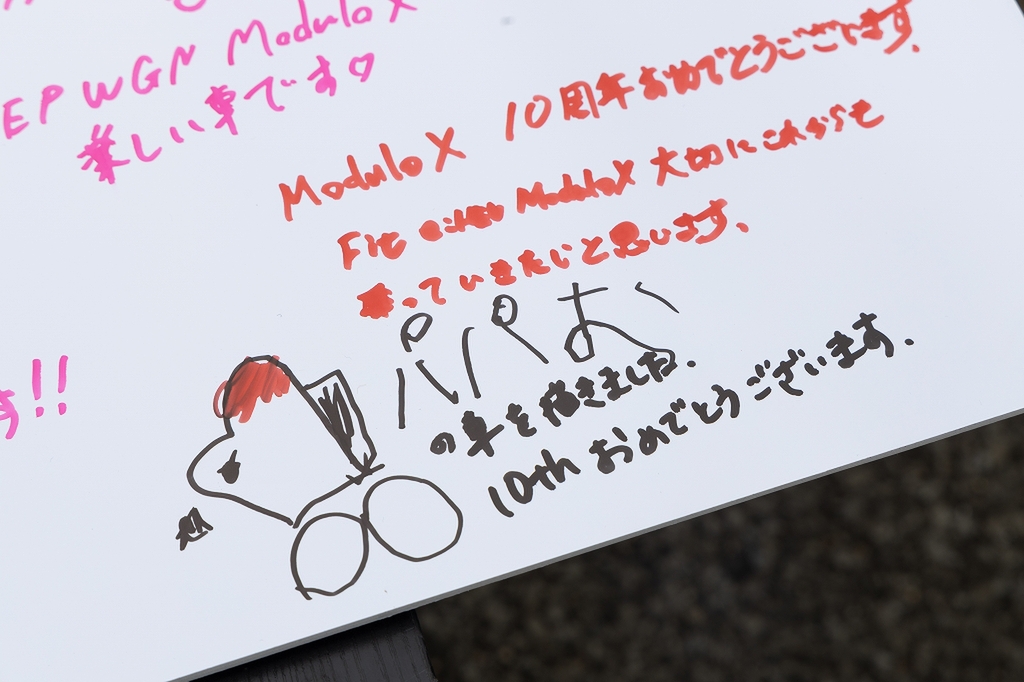 EP WGN Modulo X
楽しい車です♡
Modulo X 10周年おめでとうございます。
Fit Modulo X 大切にこれからも
乗っていきたいと思います。
す!!
パパお
の車を描きました.
10th おめでとうございます.